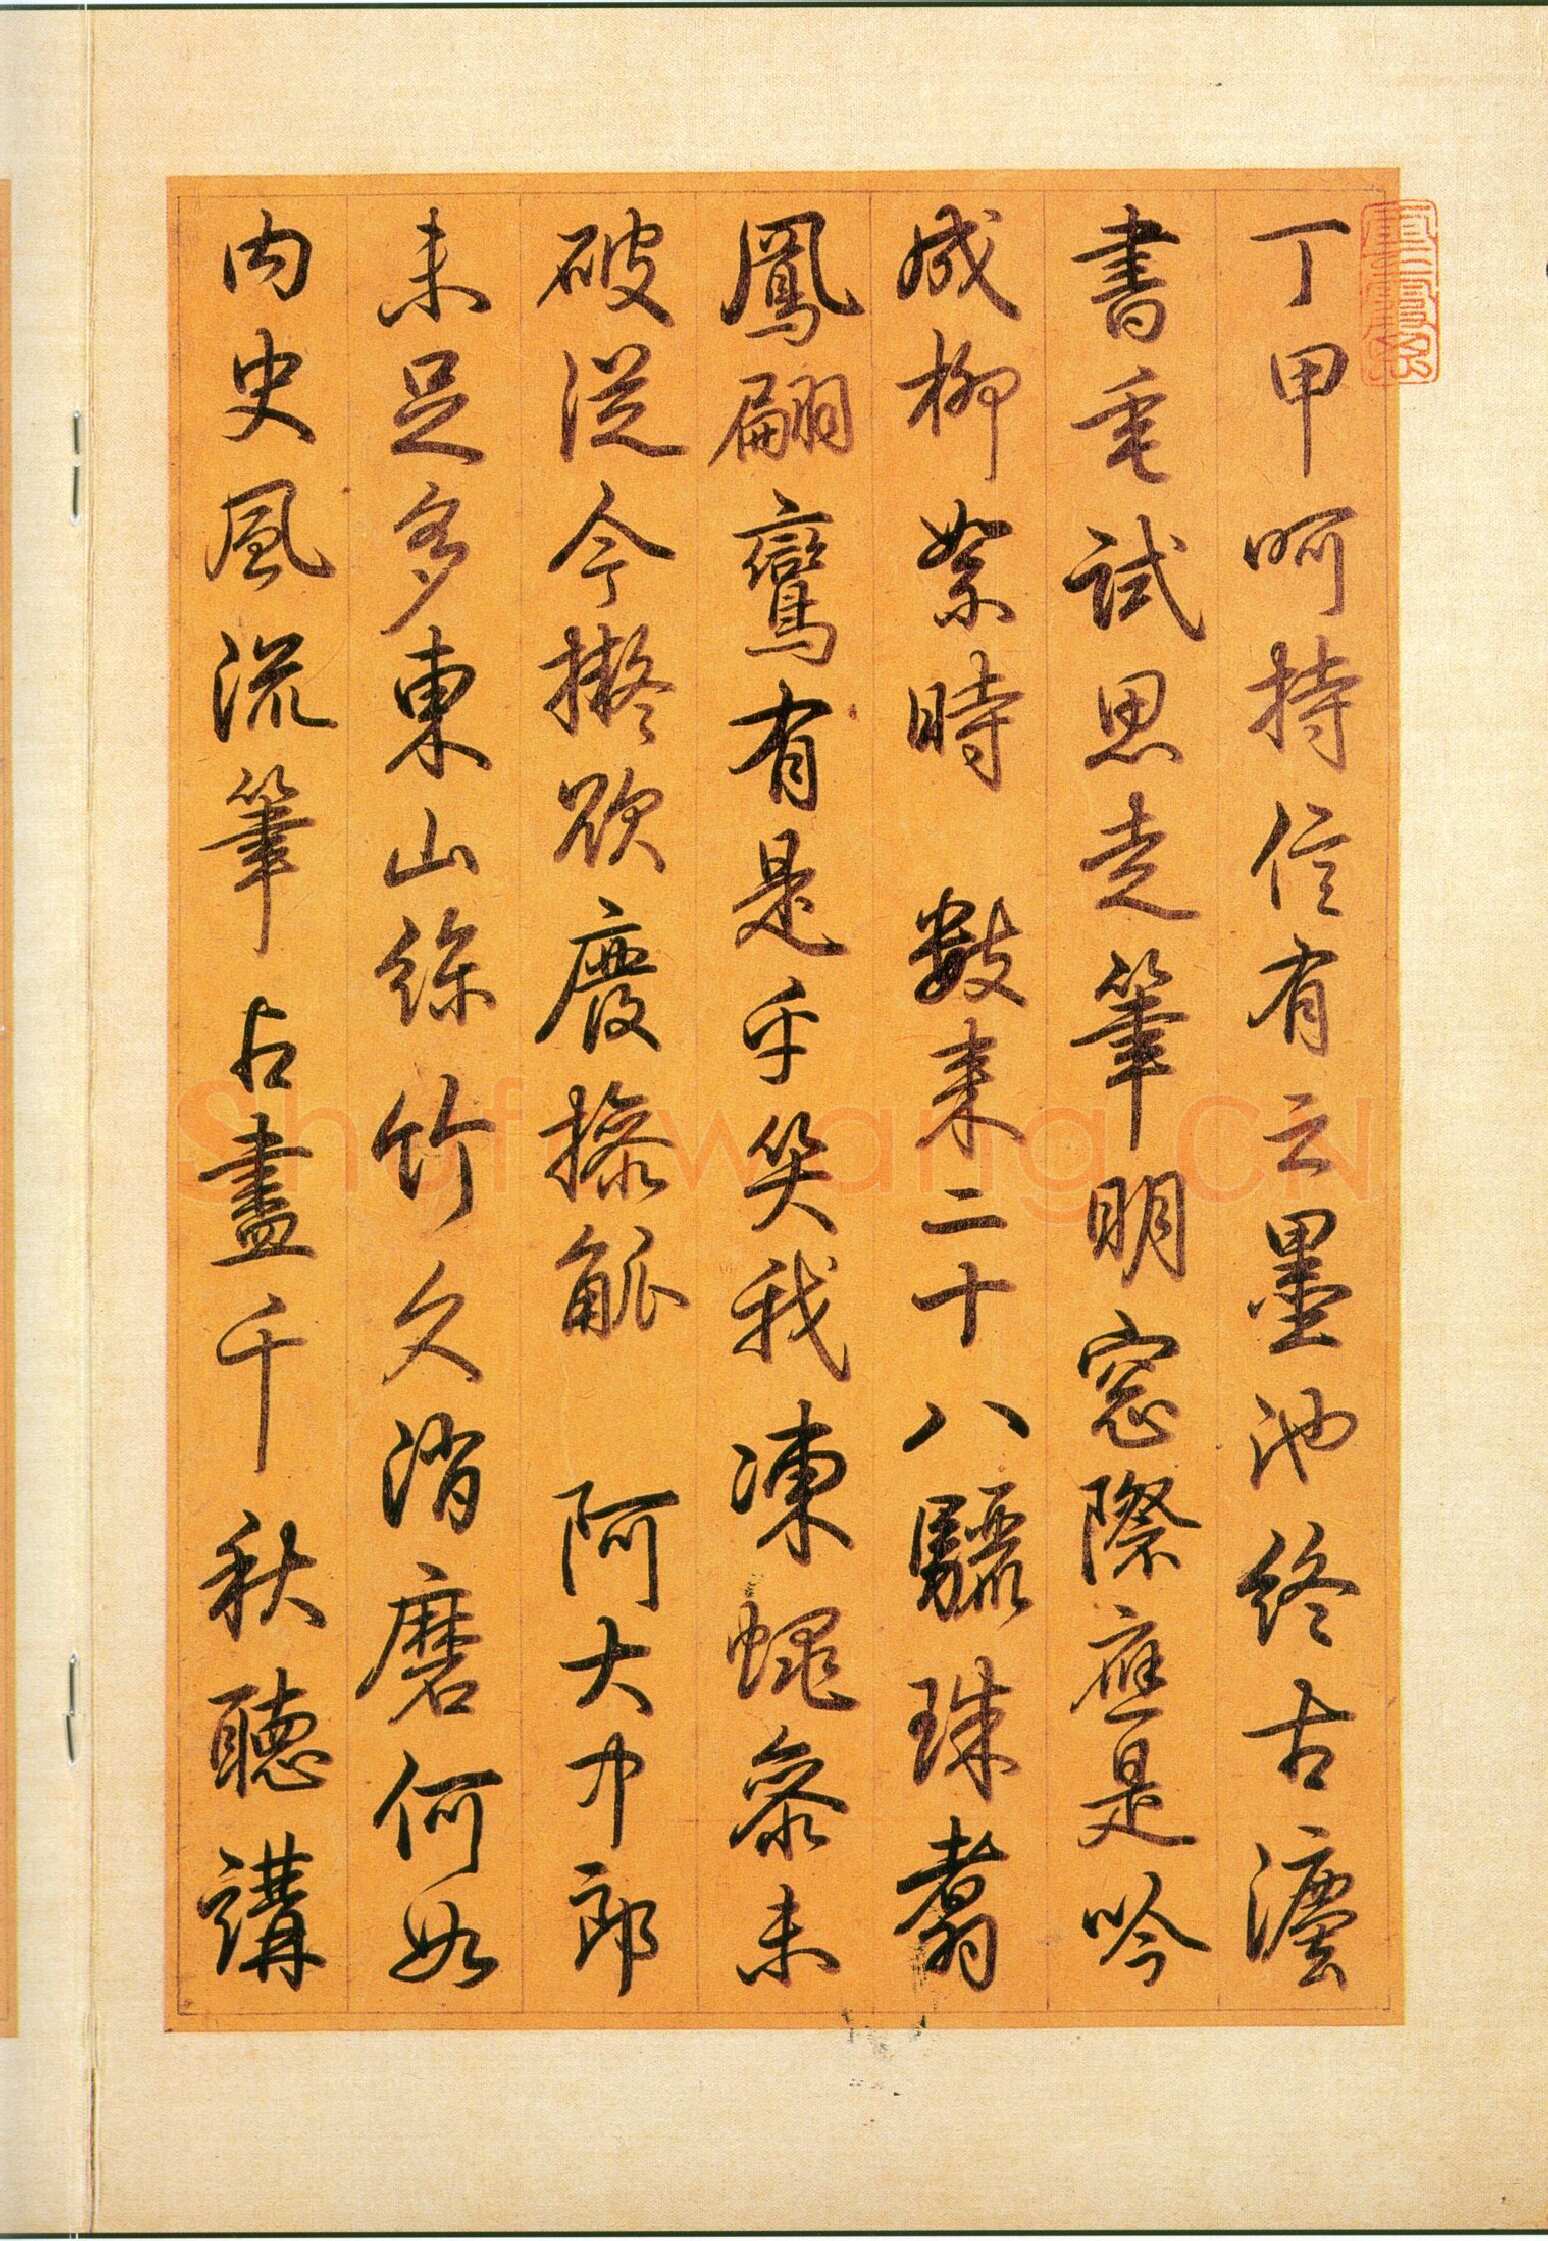 丁甲呵持信有之墨池終古瀍
書毫試思走筆明窓際應是吟
成柳絮時　數來二十八驪珠翥
鳳翩鸞有是乎笑我凍蠅參未
破從今擬欲廢操觚　阿大中郎
未足多東山絲竹久消磨何如
內史風流筆占盡千秋聽講
Shufawang.CN